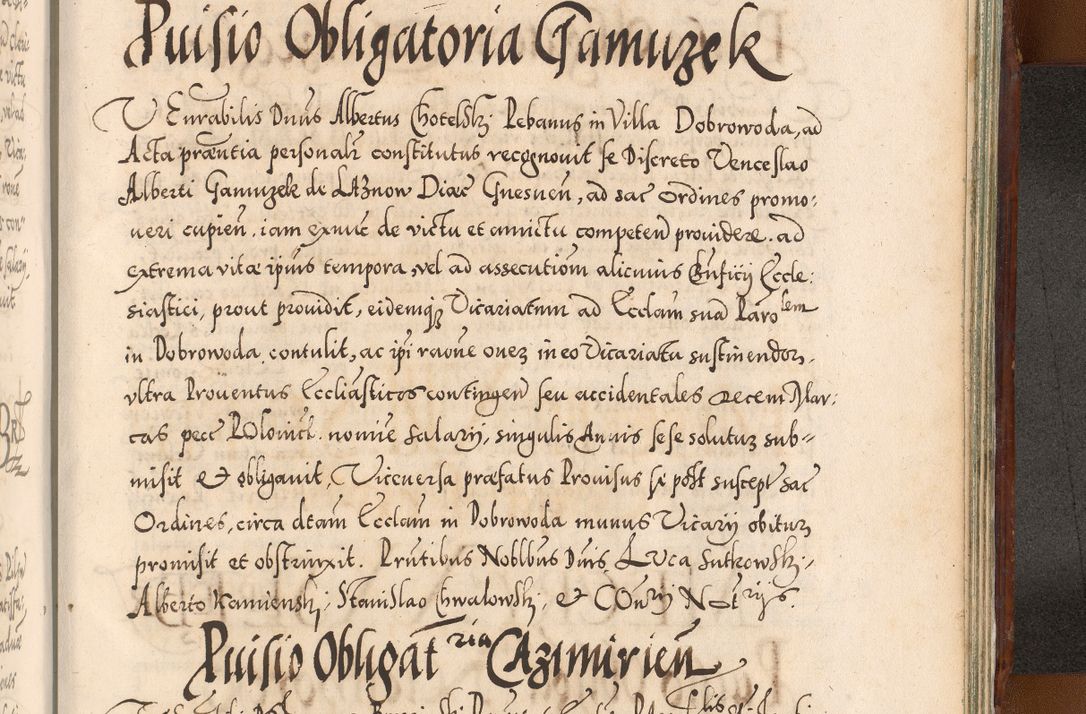 Puisio Obligatoria Gamuzek
VEnrabilis Dnus Albertus Chotelski Plebanus in Villa Dobrowoda, ad
Acta præntia personalr constitutus recognovit se Discreto Venceslao
Alberti Gamuzek de LAznow Diæc Gnesnen, ad sac ordines promo:
ueri cupien, iam exnuc de victu et amictu competen prouidere. ad
extrema vitæ ipius tempora, vel ad assecutiom alicuius Bnficij Eccle:
siastici, prout prouidit, eidemq Vicariatum ad Ecclam sua Parolem
in Dobrowoda contulit, ac ipi raone oneru in eo Vicariatu sustinendor,
vltra Prouentus Eccliasticos contingen seu accidentales Decem Mar:
cas pecc Polonicl. nomie Salarij, singulis Annis sese soluturu sub=
misit et obligauit, Viceuersa præfatus Prouisus se post suscept sac
Ordines, circa dtam Ecclam in Dobrowoda munus Vicarij obituru
promisit et obstrinxit. Prntibus Noblbus Dnis Luca Sutkowski,
Alberto Kamienski, Stanislao Chwalowski, et COnrij Notrijs.
Puisio Obligatria CAzimirien